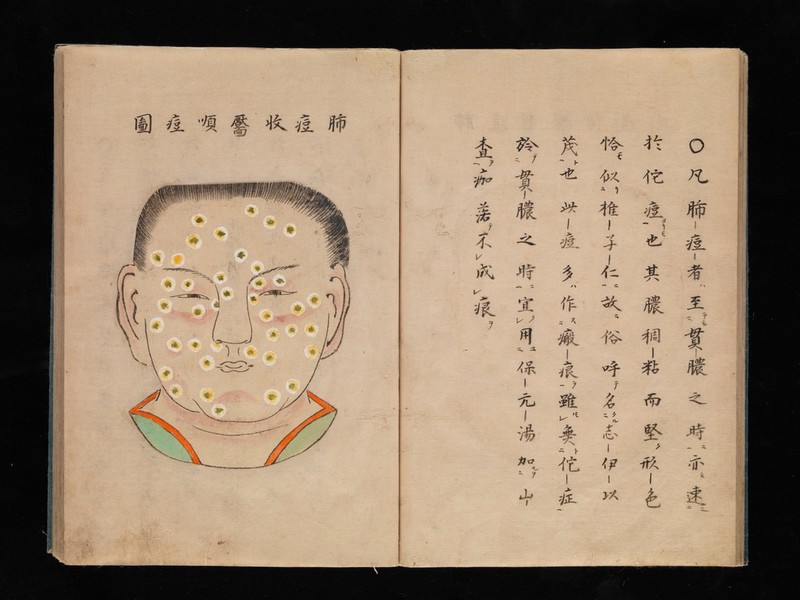 〇凡肺痘者至貫膿之時亦速
於佗痘也其膿稠粘而堅形色
恰似椎子仁故俗呼名志伊以
茂也此痘多作瘢痕雖無佗症
於貫膿之時宜用保元湯加山
査痂落不成痕
肺痘收靨順痘圖